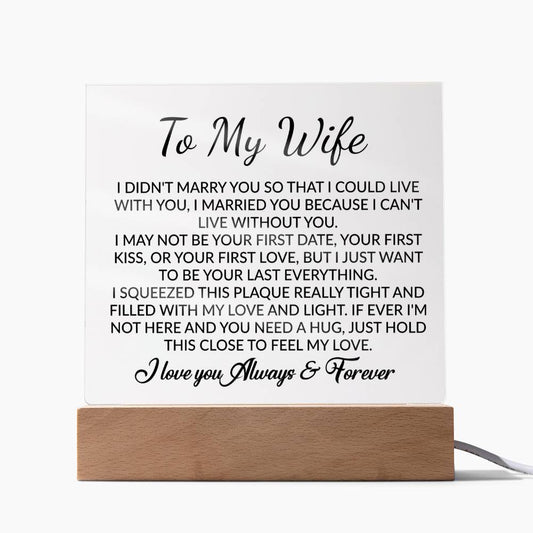 To My Wife
I DIDN'T MARRY YOU SO THAT I COULD LIVE
WITH YOU, I MARRIED YOU BECAUSE I CAN'T
LIVE WITHOUT YOU.
I MAY NOT BE YOUR FIRST DATE, YOUR FIRST
KISS, OR YOUR FIRST LOVE, BUT I JUST WANT
TO BE YOUR LAST EVERYTHING.
I SQUEEZED THIS PLAQUE REALLY TIGHT AND
FILLED WITH MY LOVE AND LIGHT. IF EVER I'M
NOT HERE AND YOU NEED A HUG, JUST HOLD
THIS CLOSE TO FEEL MY LOVE.
I love you Always & Forever